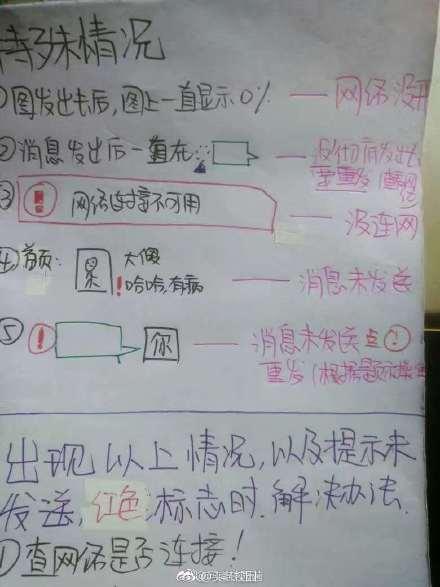 特殊情况
①图发出去后,图上一直显示0% — 网络没开
②消息发出后一直在
③! 网络连接不可用 — 没连网
④首页: 累 大偎
!哈哈,有病 — 消息未发送
⑤! 你 — 消息未发送 点!
重发(根据提示操作
出现以上情况,以及提示未
发送,红色标志时.解决办法.
①查网络是否连接!